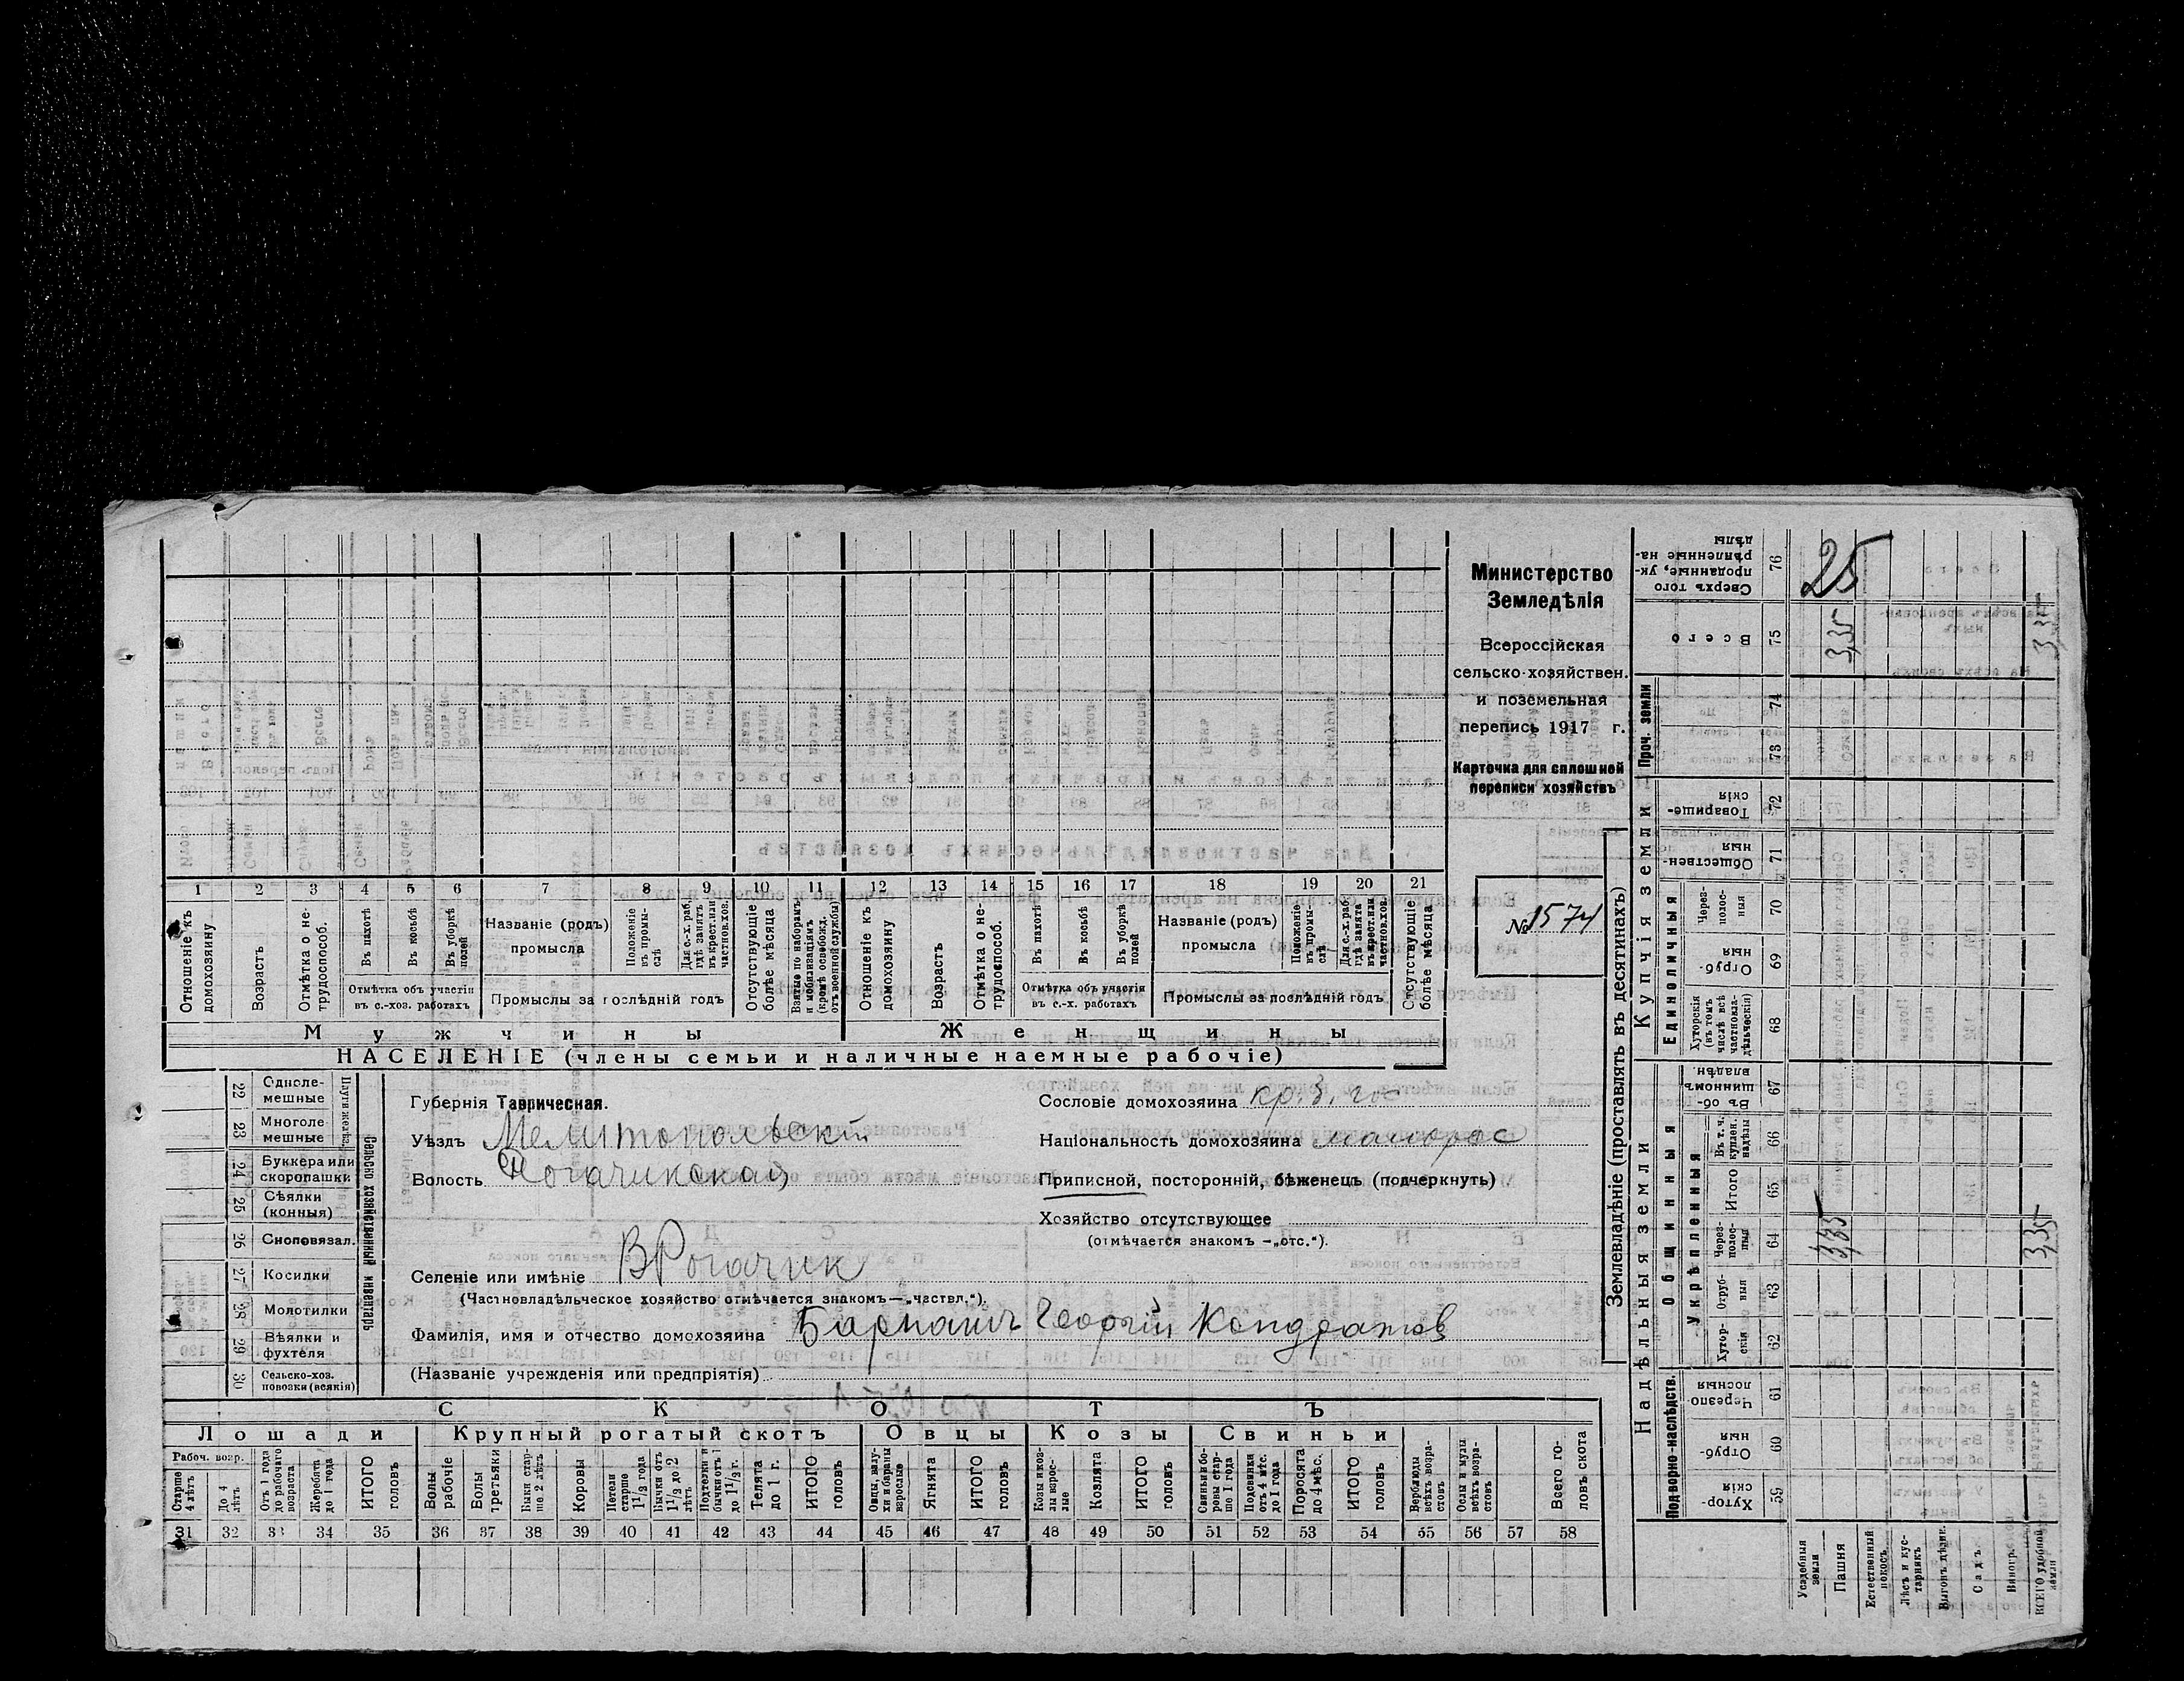 Министерство
Земледѣлія
Всероссійская
сельско-хозяйствен.
и поземельная
перепись 1917 г.
Карточка для сплошной
переписи хозяйствъ
№ 1574
1 2 3 4 5 6 7 8 9 10 11 12 13 14 15 16 17 18 19 20 21
Отношеніе къ домохозяину
Возрастъ
Отмѣтка о не-трудоспособ.
Въ пахотѣ
Въ косьбѣ
Въ уборкѣ полей
Отмѣтка объ участіи въ с.-хоз. работахъ
Названіе (родъ) промысла
Положеніе въ промы-слѣ
Для с.-х. раб. гдѣ занятъ въ крест. или частнов. хоз.
Промыслы за послѣдній годъ
Отсутствующіе болѣе мѣсяца
Взятые по наборамъ и мобилизаціямъ (кромѣ освобожд. отъ военной службы)
Отношеніе къ домохозяину
Возрастъ
Отмѣтка о не-трудоспособ.
Въ пахотѣ
Въ косьбѣ
Въ уборкѣ полей
Отмѣтка объ участіи въ с.-х. работахъ
Названіе (родъ) промысла
Положеніе въ промы-слѣ
Для с.-х. раб. гдѣ занята въ крест. или частнов. хоз.
Промыслы за послѣдній годъ
Отсутствующіе болѣе мѣсяца
Мужчины Женщины
НАСЕЛЕНІЕ (члены семьи и наличные наемные рабочіе)
Сельско хозяйственный инвентарь
22 Одноле-мешные
23 Многоле мешные
24 Буккера или скоропашки
25 Сѣялки (конныя)
26 Сноповязал.
27 Косилки
28 Молотилки
29 Вѣялки и фухтеля
30 Сельско-хоз. повозки (всякія)
Губернія Таврическая.
Уѣздъ Мелитопольскій
Волость
Селеніе или имѣніе В Рогачик
(Частновладѣльческое хозяйство отмѣчается знакомъ—„частвл.“).
Фамилія, имя и отчество домохозяина Георгій Кондратов
(Названіе учрежденія или предпріятія)
Сословіе домохозяина кр.
Національность домохозяина малорос
Приписной, посторонній, бѣженецъ (подчеркнуть)
Хозяйство отсутствующее
(отмѣчается знакомъ —„отс.“).
СКОТЪ
Лошади Крупный рогатый скотъ Овцы Козы Свиньи
Рабоч. возр.
Старше 4 лѣтъ
До 4 лѣтъ
Отъ 1 года до рабочаго возраста
Жеребята до 1 года
ИТОГО головъ
Волы рабочіе
Волы третьяки
Быки стар-ше 2 лѣтъ
Коровы
Нетели старше 1 1/2 года
Бычки отъ 1 1/2 до 2 лѣтъ
Подтелки и бычки отъ 1 до 1 1/2 г.
Телята до 1 г.
ИТОГО головъ
Овцы, валу-хи и бараны взрослые
Ягнята
ИТОГО головъ
Козы и коз-лы взрос-лые
Козлята
ИТОГО головъ
Свиньи и бо-ровы стар-ше 1 года
Подсвинки отъ 4 мѣс. до 1 года
Поросята до 4 мѣс.
ИТОГО головъ
Верблюды всѣхъ возра-стовъ
Ослы и мулы всѣхъ возра-стовъ
Всего го-ловъ скота
31 32 33 34 35 36 37 38 39 40 41 42 43 44 45 46 47 48 49 50 51 52 53 54 55 56 57 58
Землевладѣніе (проставлять въ десятинахъ)
Надѣльныя земли Купчія земли Проч. земли
Подворно-наслѣдств.
Общинныя
Укрѣпленныя
Единоличныя
59 Хутор-скія
60 Отруб-ныя
61 Черезпо лосныя
62 Хутор-скія
63 Отруб-ныя
64 Через-полос-ныя 3,35 3,35
65 Итого
66 Въ т. ч. куплен. надѣлы
67 Въ об-щинномъ владѣн.
68 Хуторскія (въ томъ числѣ всѣ частновла-дѣльческія)
69 Отруб-ныя
70 Через-полос-ныя
71 Обществен-ныя
72 Товарище-скія
73
74
75 Всего 3,35 3,35
76 Сверхъ того проданные, ук-рѣпленные на-дѣлы
25
Усадебныя земли
Пашня
Естественный покосъ
Лѣсъ и кус-тарникъ
Выгонъ
Садъ
Виногр.
ВСЕГО удобной земли